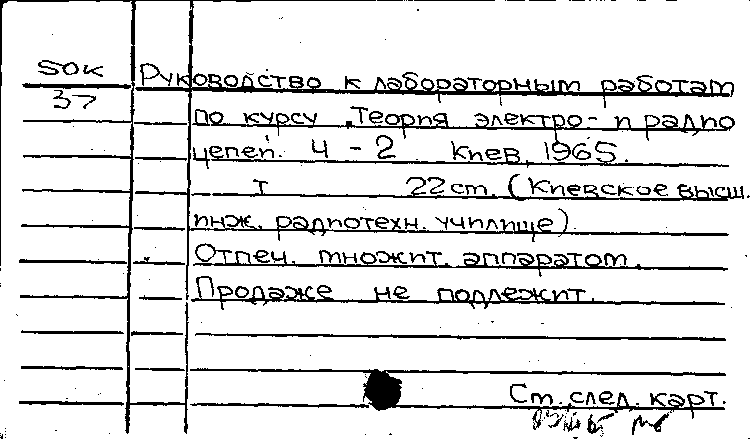 50к
37
Руководство к лабораторным работам
по курсу „Теория электро- и радио
цепей. Ч - 2 Киев, 1965.
т 22 см. (Киевское высш.
инж. радиотехн. училище)
Отпеч. множит. аппаратом.
Продаже не подлежит.
См. след. карт.